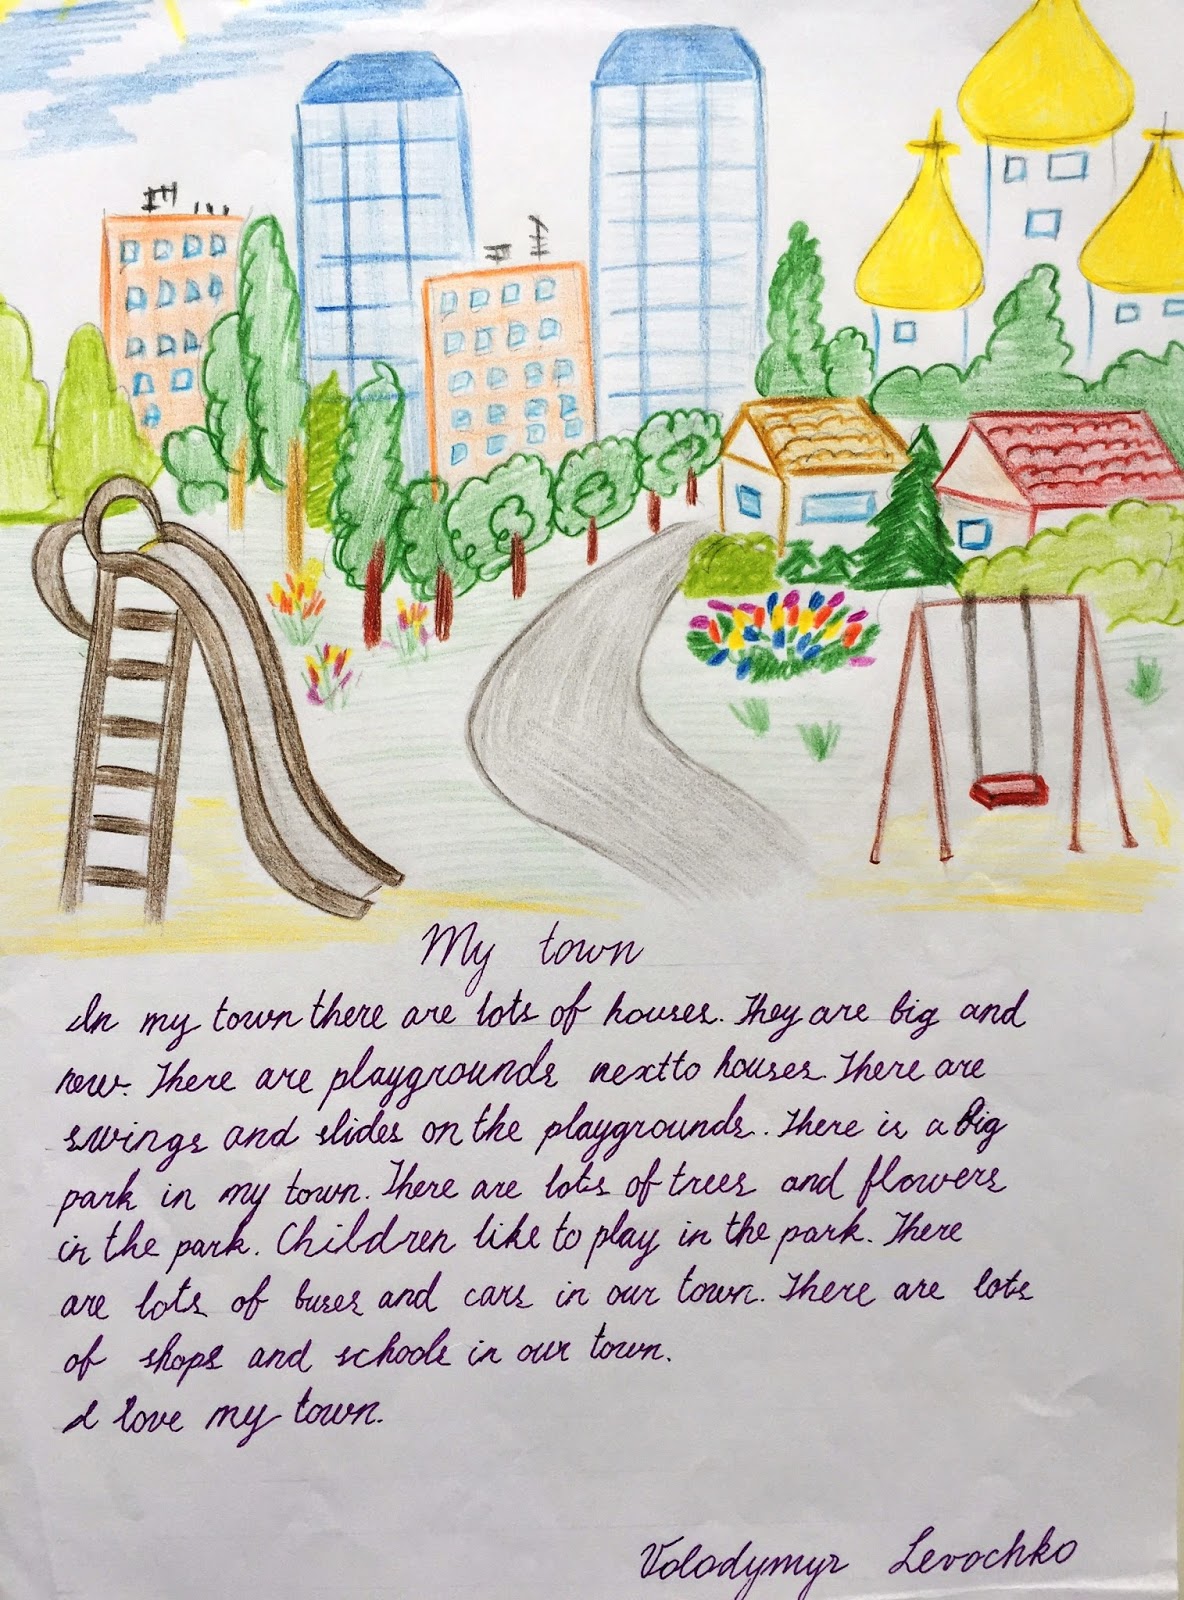 My town
In my town there are lots of houses. They are big and
new. There are playgrounds next to houses. There are
swings and slides on the playgrounds. There is a Big
park in my town. There are lots of trees and flowers
in the park. Children like to play in the park. There
are lots of buses and cars in our town. There are lots
of shops and schools in our town.
I love my town.
Volodymyr Levochko